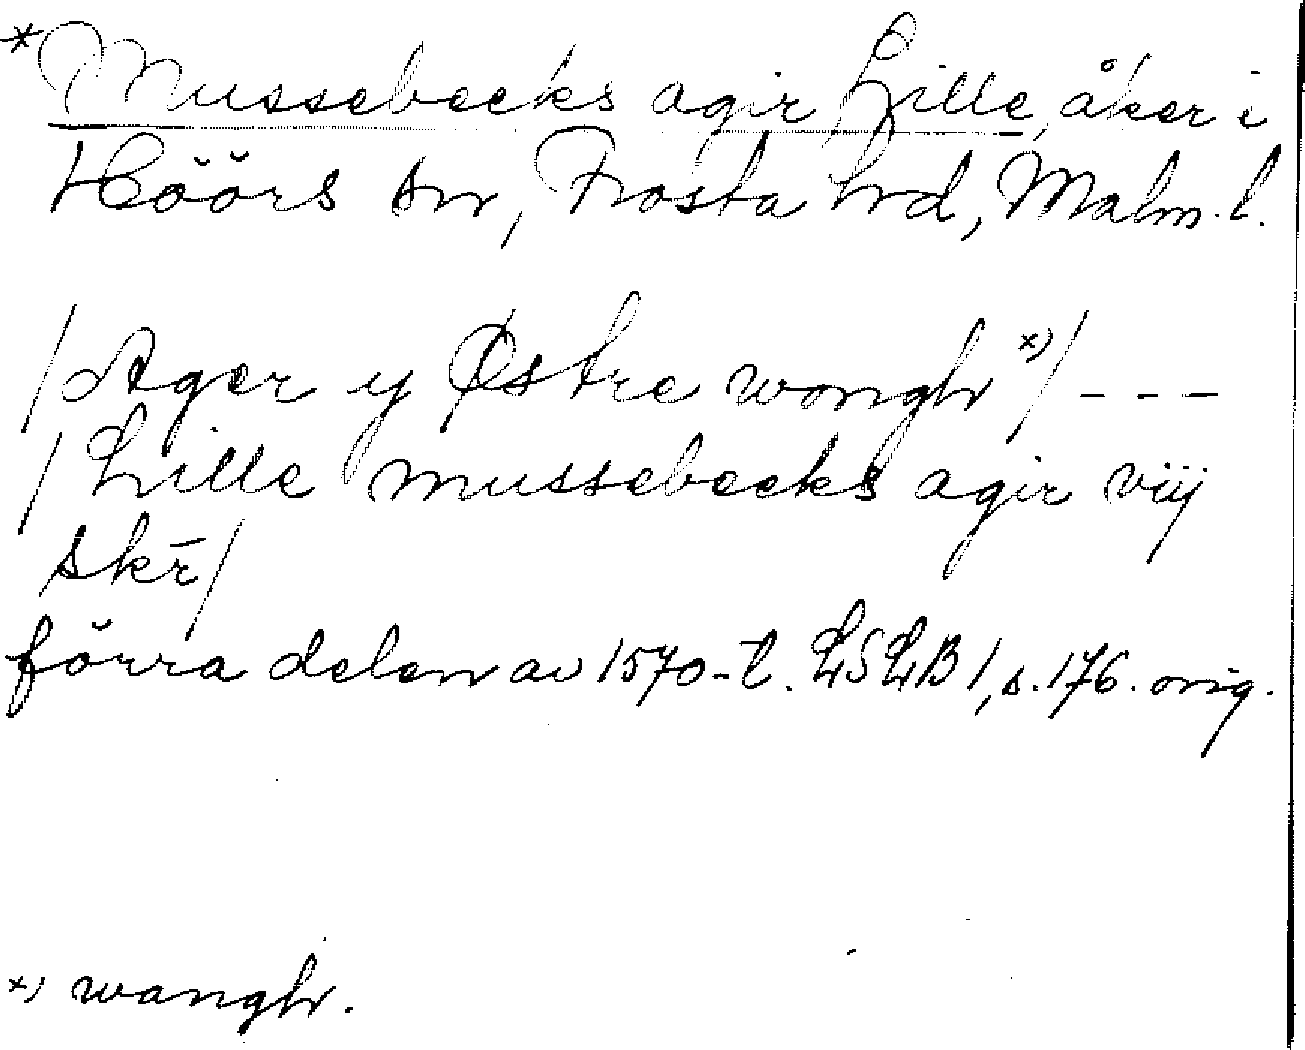 *Mussebecks agir Lille, åker i
Höörs sn, Frosta hrd, Malm. l.
/Ager y Østre wongh x)/ - - -
/Lille mussebecks agir viij
skr̄/
förra delen av 1570-t. LSLB 1, s. 176. orig.
x) wangh.